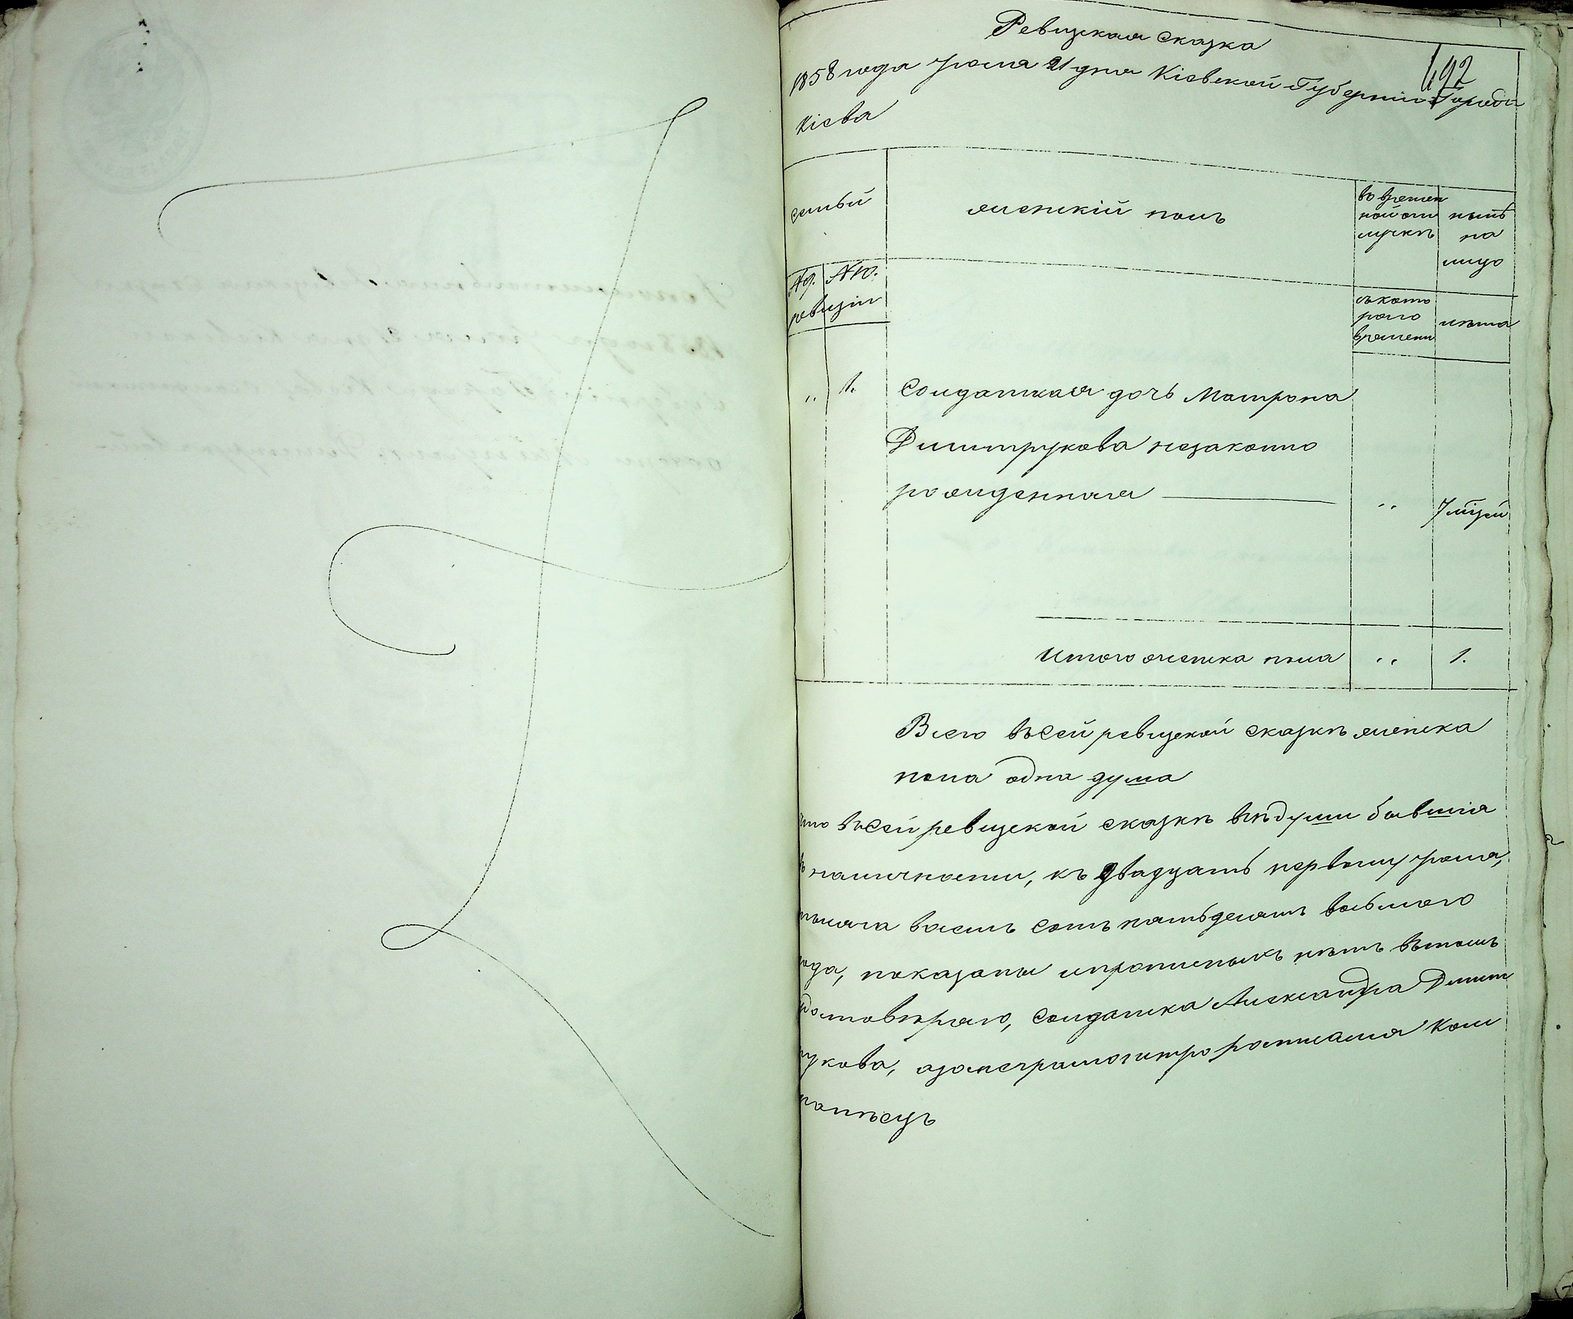 Ревизская сказка
492
1858 года Iюля 21 дня Кіевской Губерніи Города
Кіева
семьи
женскій полъ
во времен
ной от
лучкѣ
нынѣ
на
лицо
ревизіи
съ кото
раго
времени
лѣта
„ 1. Солдатская дочь Матрона
Димитрукова незаконно
рожденная — „ 7 мѣсяц
Итого женска пола „ 1.
Всего въ сей ревизской сказкѣ женска
пола одна душа
что въ сей ревизской сказкѣ всѣ души бывшія
въ наличности, къ двадцать первому Iюля,
тысяча восемь сотъ пятьдесятъ восьмого
года, показаны и прописныхъ нѣтъ въ томъ
удостовѣряю, солдатка Александра Димит
рукова, а за неграмотную росписался